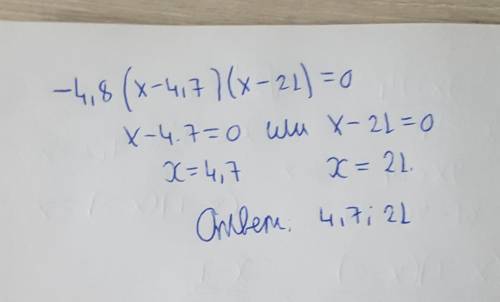 -4,8(x-4,7)(x-21)=0
x-4.7=0 или x-21=0
x=4,7 x=21.
Ответ: 4,7; 21